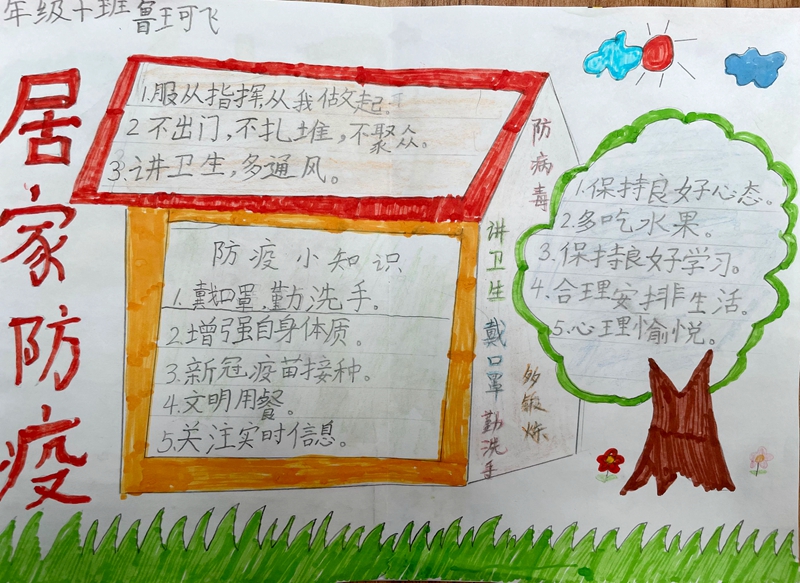 年级十班 鲁珏飞
居家防疫
1.服从指挥从我做起.
2 不出门,不扎堆,不聚众。
3.讲卫生,多通风。
防疫小知识
1.戴口罩.勤洗手。
2.增强自身体质。
3.新冠疫苗接种。
4.文明用餐。
5.关注实时信息。
防病毒
讲卫生 戴口罩 勤洗手
多锻炼
1.保持良好心态。
2.多吃水果。
3.保持良好学习。
4.合理安排生活。
5.心理愉悦。